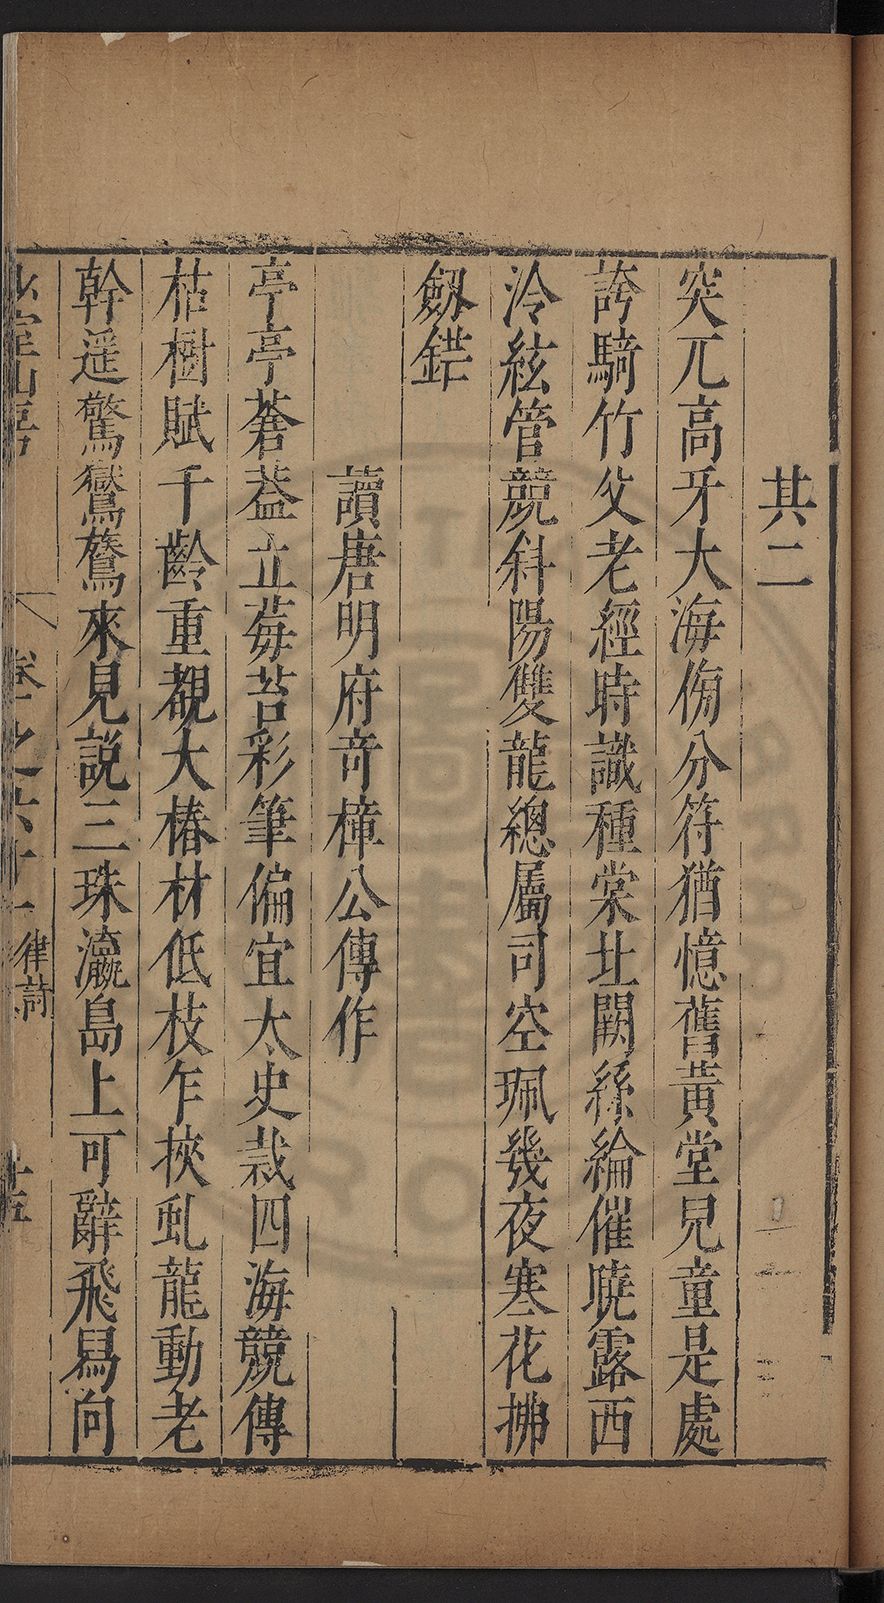 其二
突兀高牙大海傍分符猶憶舊黃堂兒童是處
誇騎竹父老經時識種棠北闕絲綸催曉露西
泠絃管競斜陽雙龍總屬司空珮幾夜寒花拂
劔鋩
讀唐明府奇樟公傳作
亭亭蒼葢立莓苔彩筆偏宜太史裁四海競傳
枯樹賦千齡重覩大椿材低枝乍挾虬龍動老
幹遥驚鸑鷟來見説三珠瀛島上可辭飛舄向
少室山房 卷之六十一 律詩 十五